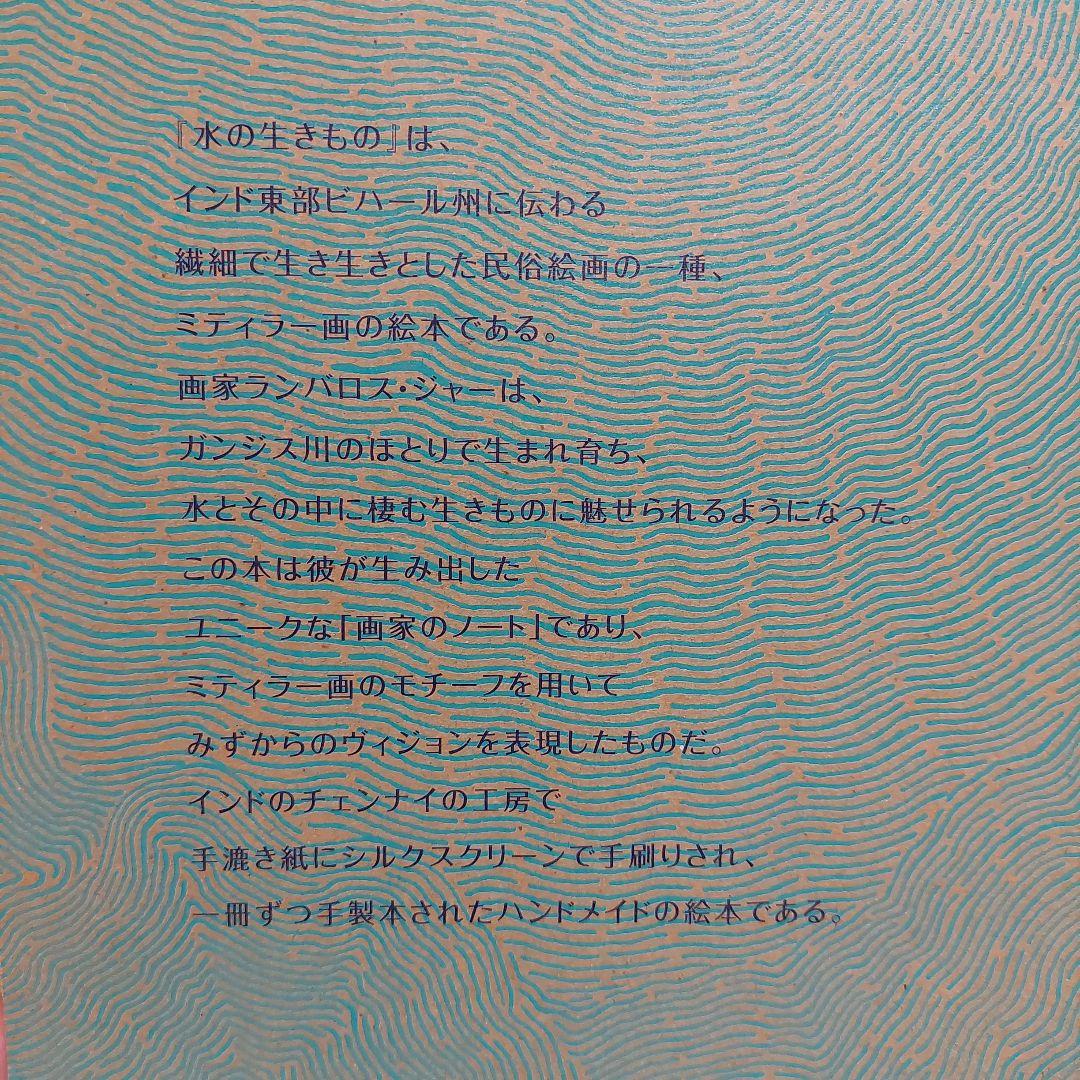 『水の生きもの』は、
インド東部ビハール州に伝わる
繊細で生き生きとした民俗絵画の一種、
ミティラー画の絵本である。
画家ランバロス・ジャーは、
ガンジス川のほとりで生まれ育ち、
水とその中に棲む生きものに魅せられるようになった。
この本は彼が生み出した
ユニークな「画家のノート」であり、
ミティラー画のモチーフを用いて
みずからのヴィジョンを表現したものだ。
インドのチェンナイの工房で
手漉き紙にシルクスクリーンで手刷りされ、
一冊ずつ手製本されたハンドメイドの絵本である。